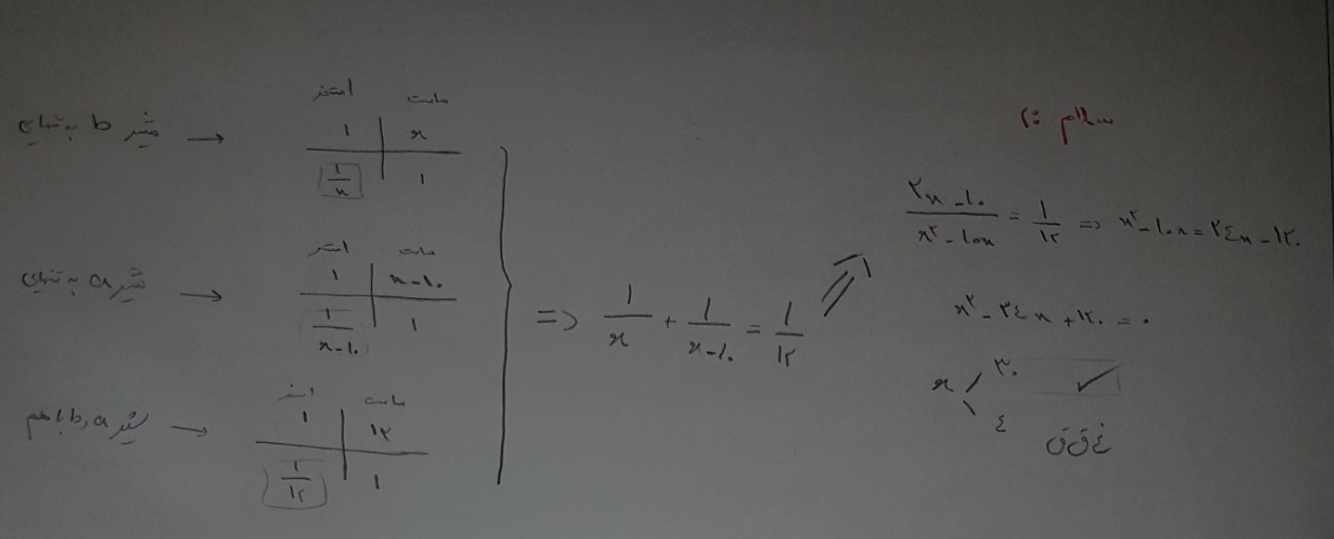 سلام :)
شیر b به تنهایی →
استخر | ساعت
۱ | x
۱/x | ۱
شیر a به تنهایی →
استخر | ساعت
۱ | x-۱۰
۱/(x-۱۰) | ۱
شیر a و b با هم →
استخر | ساعت
۱ | ۱۲
۱/۱۲ | ۱
=> ۱/x + ۱/(x-۱۰) = ۱/۱۲
(۲x-۱۰)/(x²-۱۰x) = ۱/۱۲ => x²-۱۰x = ۲۴x-۱۲۰
x²-۳۴x+۱۲۰=۰
x ۳۰ ✓
۴ غ ق ق